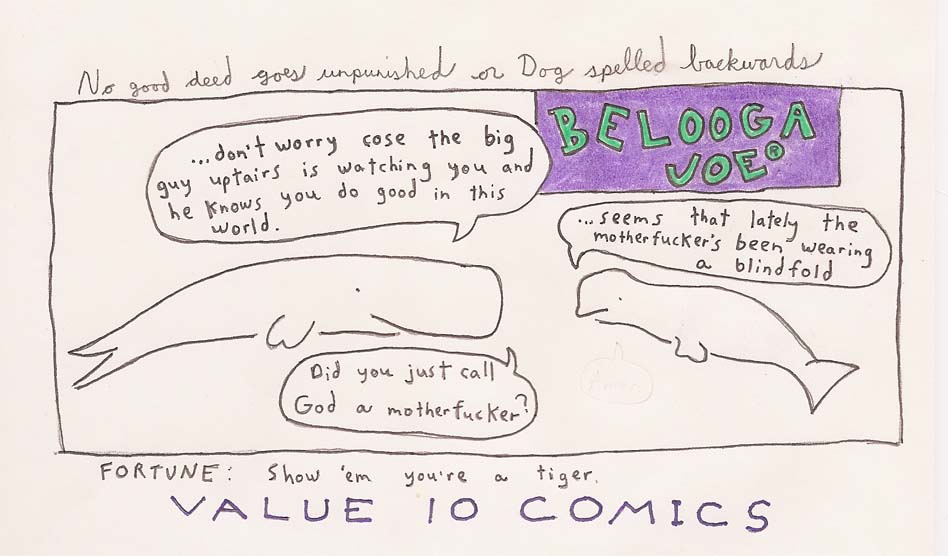 No good deed goes unpunished or Dog spelled backwards
BELOOGA
JOE®
...don't worry cose the big
guy uptairs is watching you and
he knows you do good in this
world.
...seems that lately the
motherfucker's been wearing
a blindfold
Did you just call
God a motherfucker?
Amen
FORTUNE: Show 'em you're a tiger.
VALUE 10 COMICS